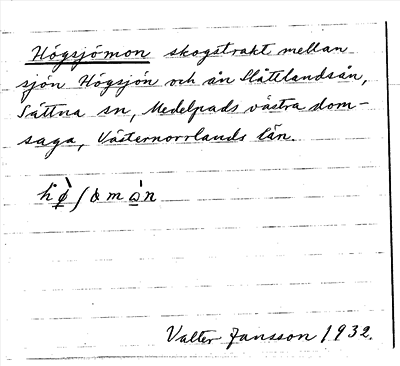 Högsjömon skogstrakt mellan
sjön Högsjön och ån Slättlandsån,
Sättna sn, Medelpads västra dom-
saga, Västernorrlands län.
Valter Jansson 1932.